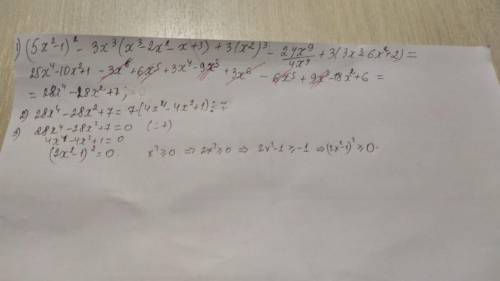 1) (5x²-1)² - 3x³(x³-2x²-x+3) + 3(x²)³ - 24x⁹/4x⁴ + 3(3x³-6x²+2) =
25x⁴-10x²+1 - 3x⁶+6x⁵+3x⁴-9x³ + 3x⁶ - 6x⁵ + 9x³-18x²+6 =
= 28x⁴-28x²+7;
2) 28x⁴-28x²+7 = 7·(4x⁴-4x²+1) ⋮ 7
3) 28x⁴-28x²+7=0 (:7)
4x⁴-4x²+1=0
(2x²-1)²=0. x²≥0 ⇒ 2x²≥0 ⇒ 2x²-1≥-1 ⇒(2x²-1)²≥0.